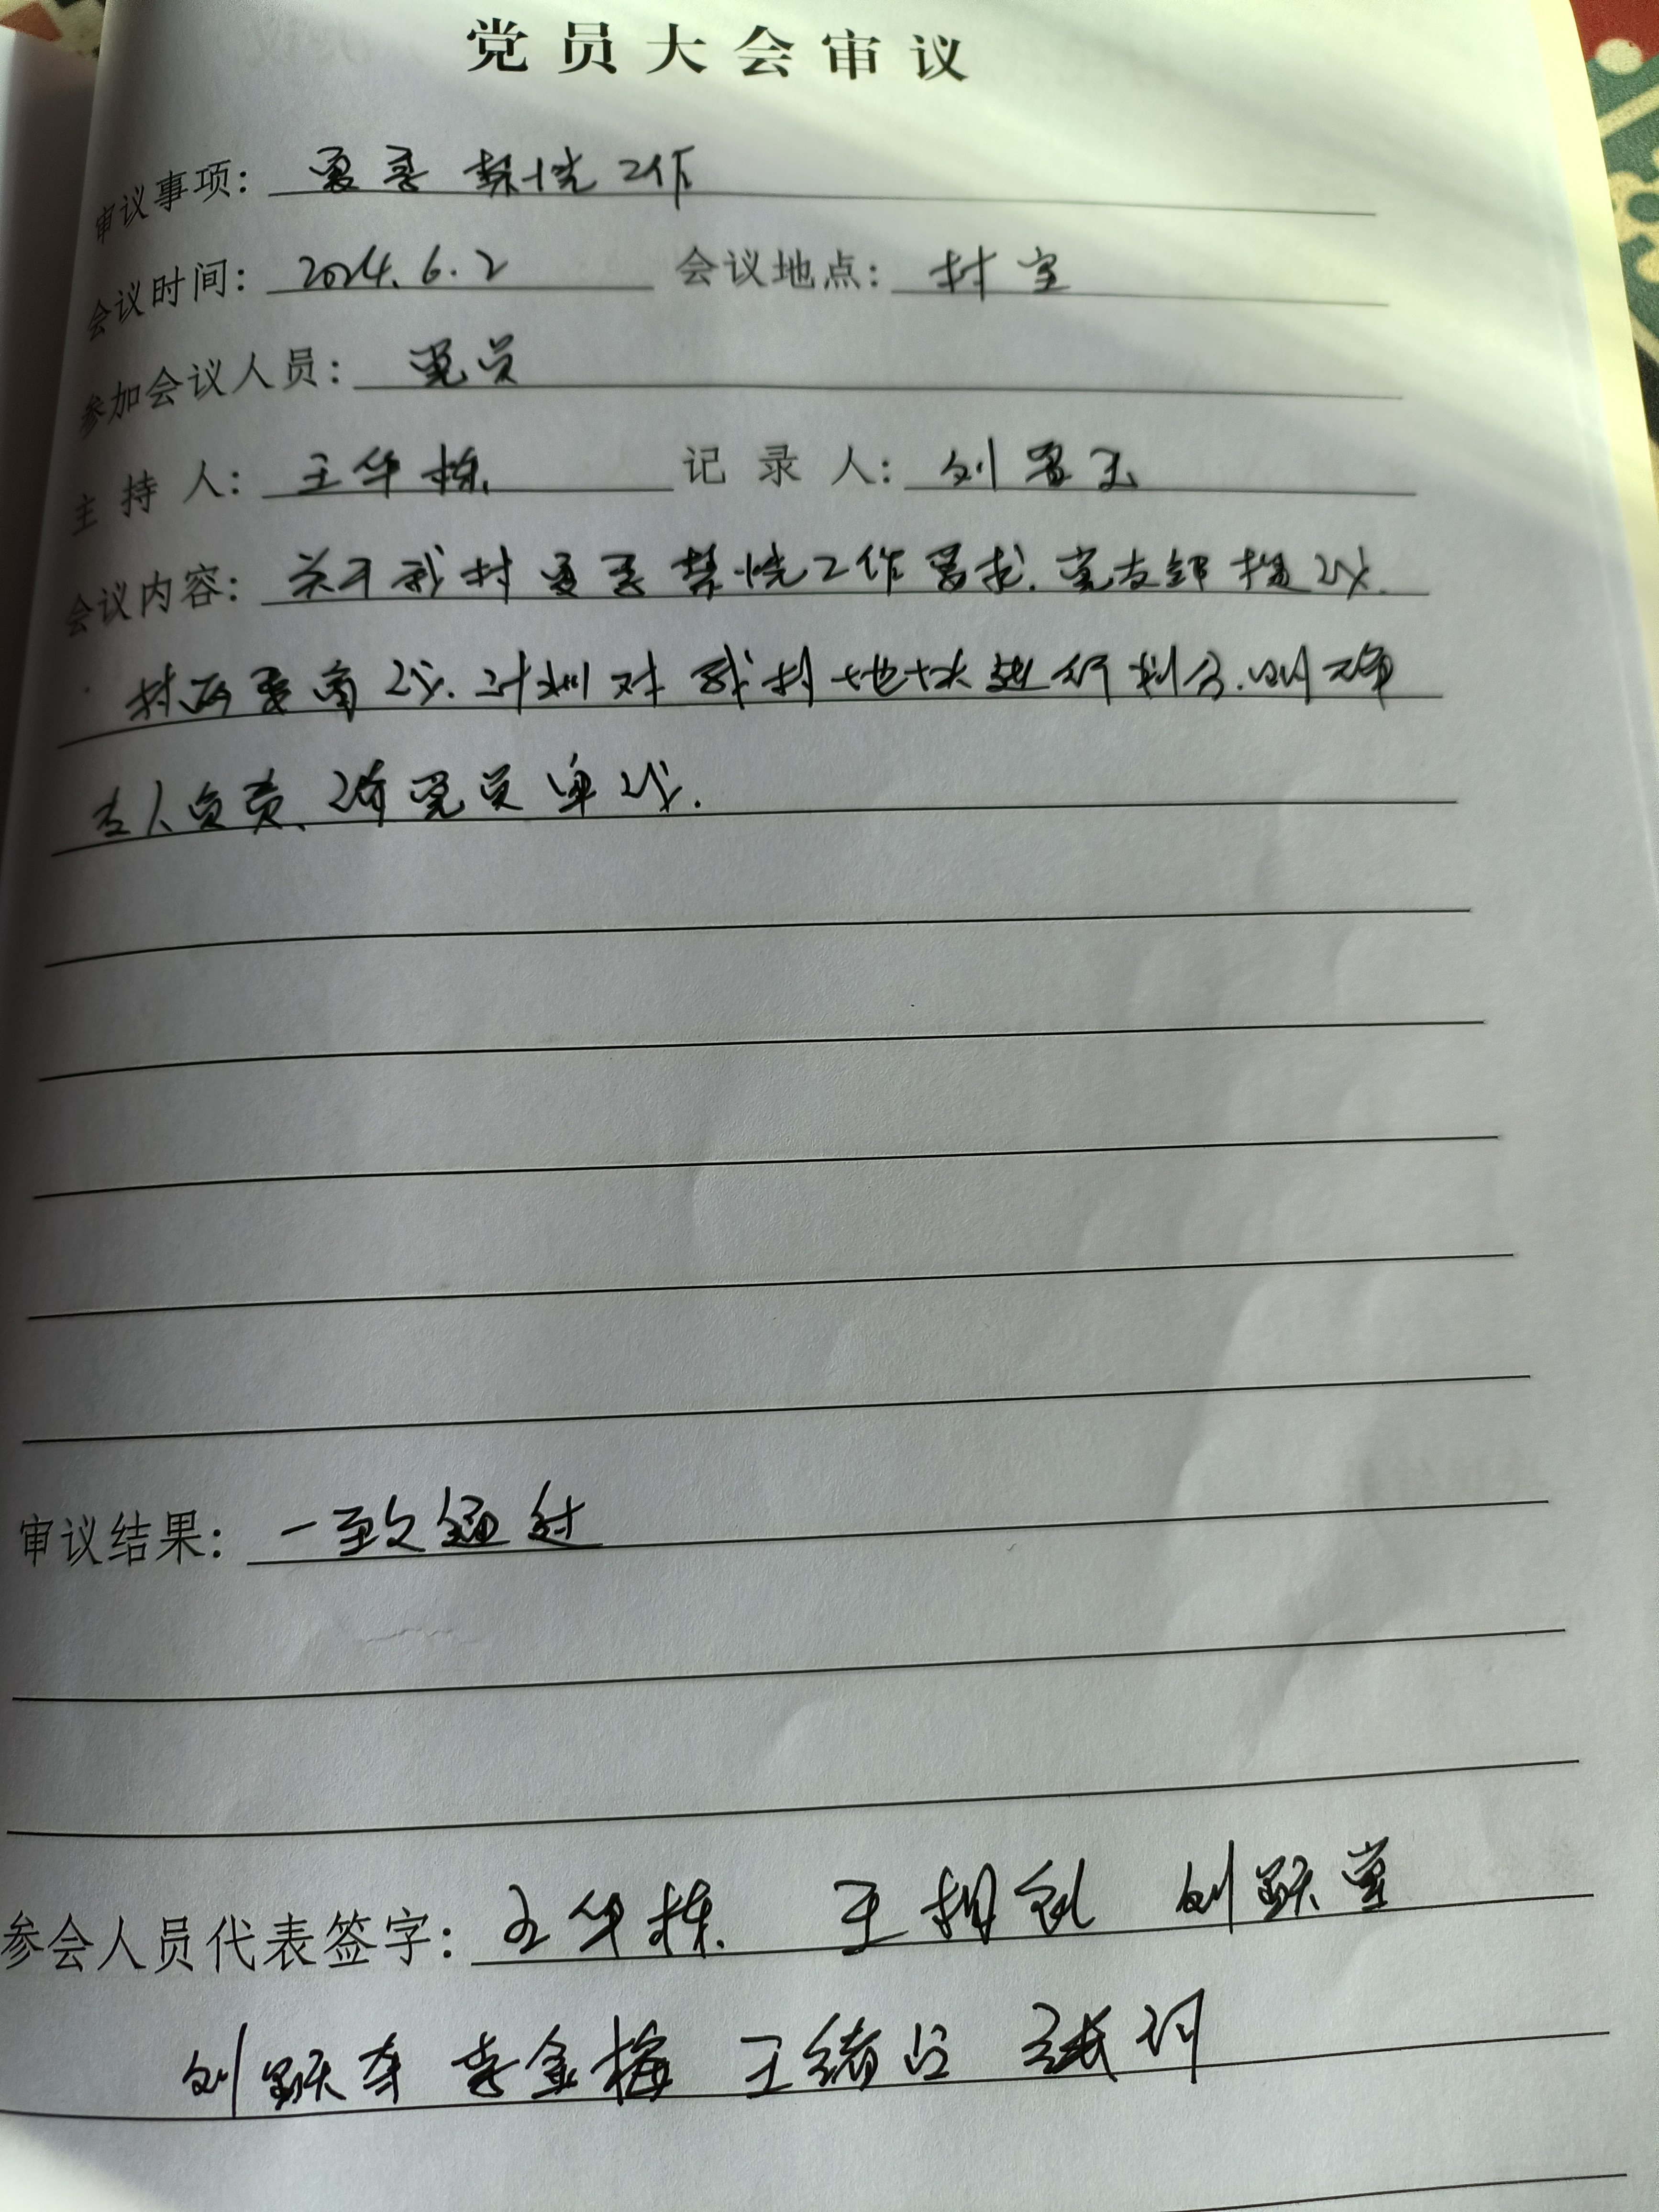 党员大会审议
审议事项: 夏季禁烧工作
会议时间: 2024.6.2 会议地点: 村室
参加会议人员: 党员
主持人: 王华栋 记录人: 刘
会议内容: 关于我村夏季禁烧工作要求.党支部提议.
村两委商议.计划对我村地块进行划分.明确
专人负责、请党员审议.
审议结果: 一致通过
参会人员代表签字: 王华栋. 王相 刘跃堂
刘跃 李金梅 王绪 张